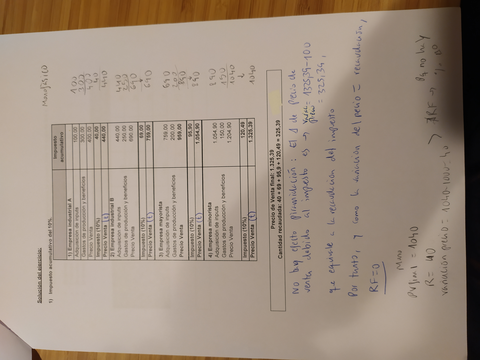 Solución del ejercicio:
1) Impuesto acumulativo del 10%.
Impuesto
acumulativo
1) Empresa industrial A
Adquisición de inputs 100,00
Gastos de producción y beneficios 300,00
Precio Venta 400,00
Impuesto (10%) 40,00
Precio Venta (t) 440,00
2) Empresa industrial B
Adquisición de inputs 440,00
Gastos de producción y beneficios 250,00
Precio Venta 690,00
Impuesto (10%) 69,00
Precio Venta (t) 759,00
3) Empresa mayorista
Adquisición de inputs 759,00
Gastos de producción y beneficios 200,00
Precio Venta 959,00
Impuesto (10%) 95,90
Precio Venta (t) 1.054,90
4) Empresa minorista
Adquisición de inputs 1.054,90
Gastos de producción y beneficios 150,00
Precio Venta 1.204,90
Impuesto (10%) 120,49
Precio Venta (t) 1.325,39
Monofásico
100
300
400
40
440
440
250
690
690
690
200
890
890
890
150
1040
1040
Precio de Venta final: 1.325,39
Cantidad recaudada: 40 + 69 + 95,9 + 120,49 = 325,39
No hay efecto piramidación: El Δ de precio de
venta debido al impuesto es → 1325,39-1000
= 325,39,
que equivale a la recaudación del impuesto
Por tanto, y como la variación del precio = recaudación,
RF=0
Mono
PVfinal = 1040
R = 40
variación precio = 1040-1000=40